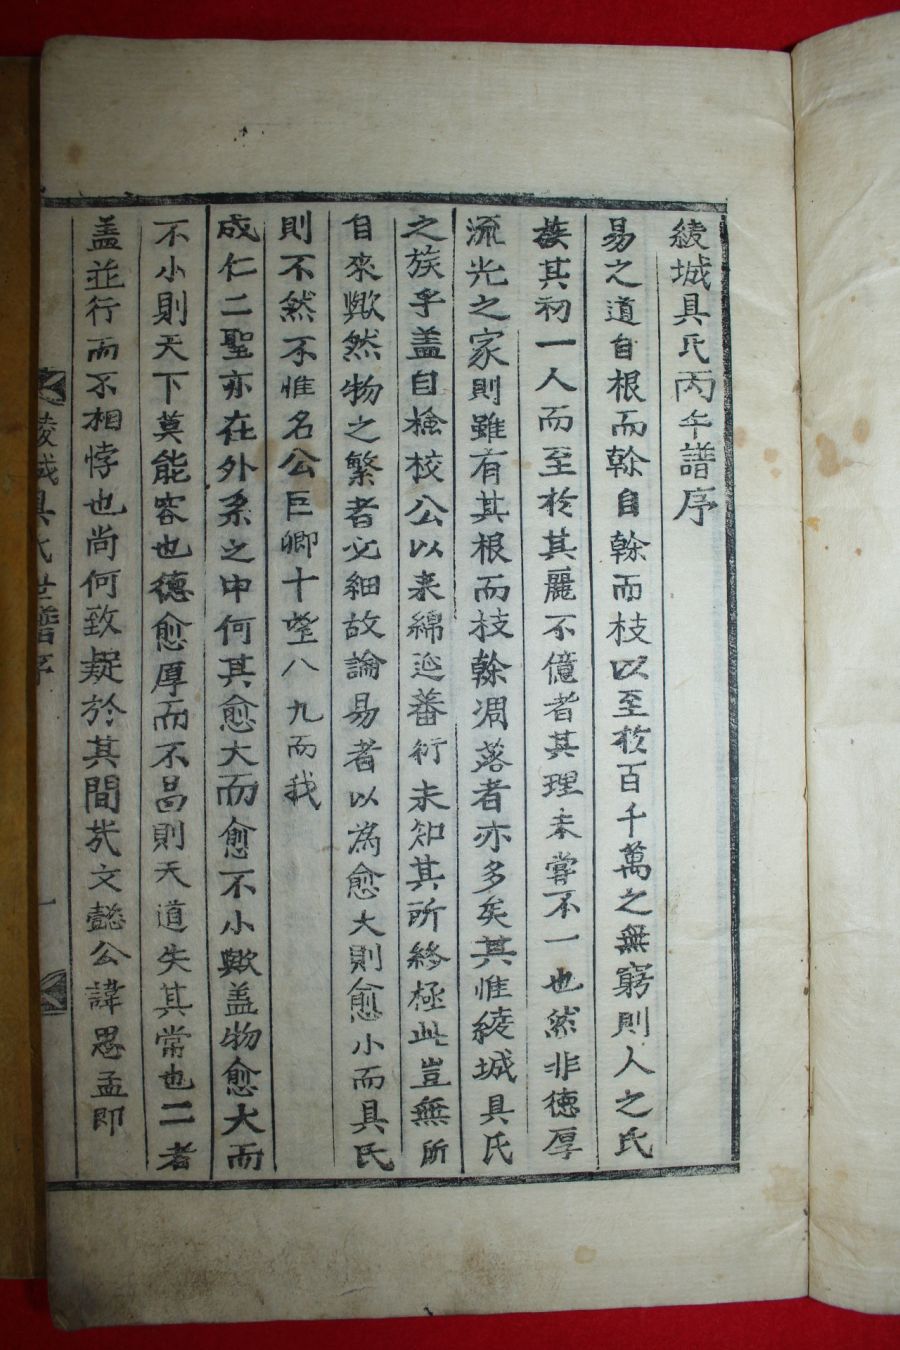 綾城具氏丙午譜序
易之道自根而榦自榦而枝以至於百千萬之無窮則人之氏
族其初一人而至於其麗不億者其理未嘗不一也然非德厚
流光之家則雖有其根而枝榦凋落者亦多矣其惟綾城具氏
之族乎盖自檢校公以来綿遠蕃衍未知其所終極此豈無所
自來歟然物之繁者必細故論易者以為愈大則愈小而具氏
則不然不惟名公巨卿十望八九而我
成仁二聖亦在外系之中何其愈大而愈不小歟盖物愈大而
不小則天下莫能容也德愈厚而不昌則天道失其常也二者
盖並行而不相悖也尚何致疑於其間㢤文懿公諱思孟即
綾城具氏世譜序
一